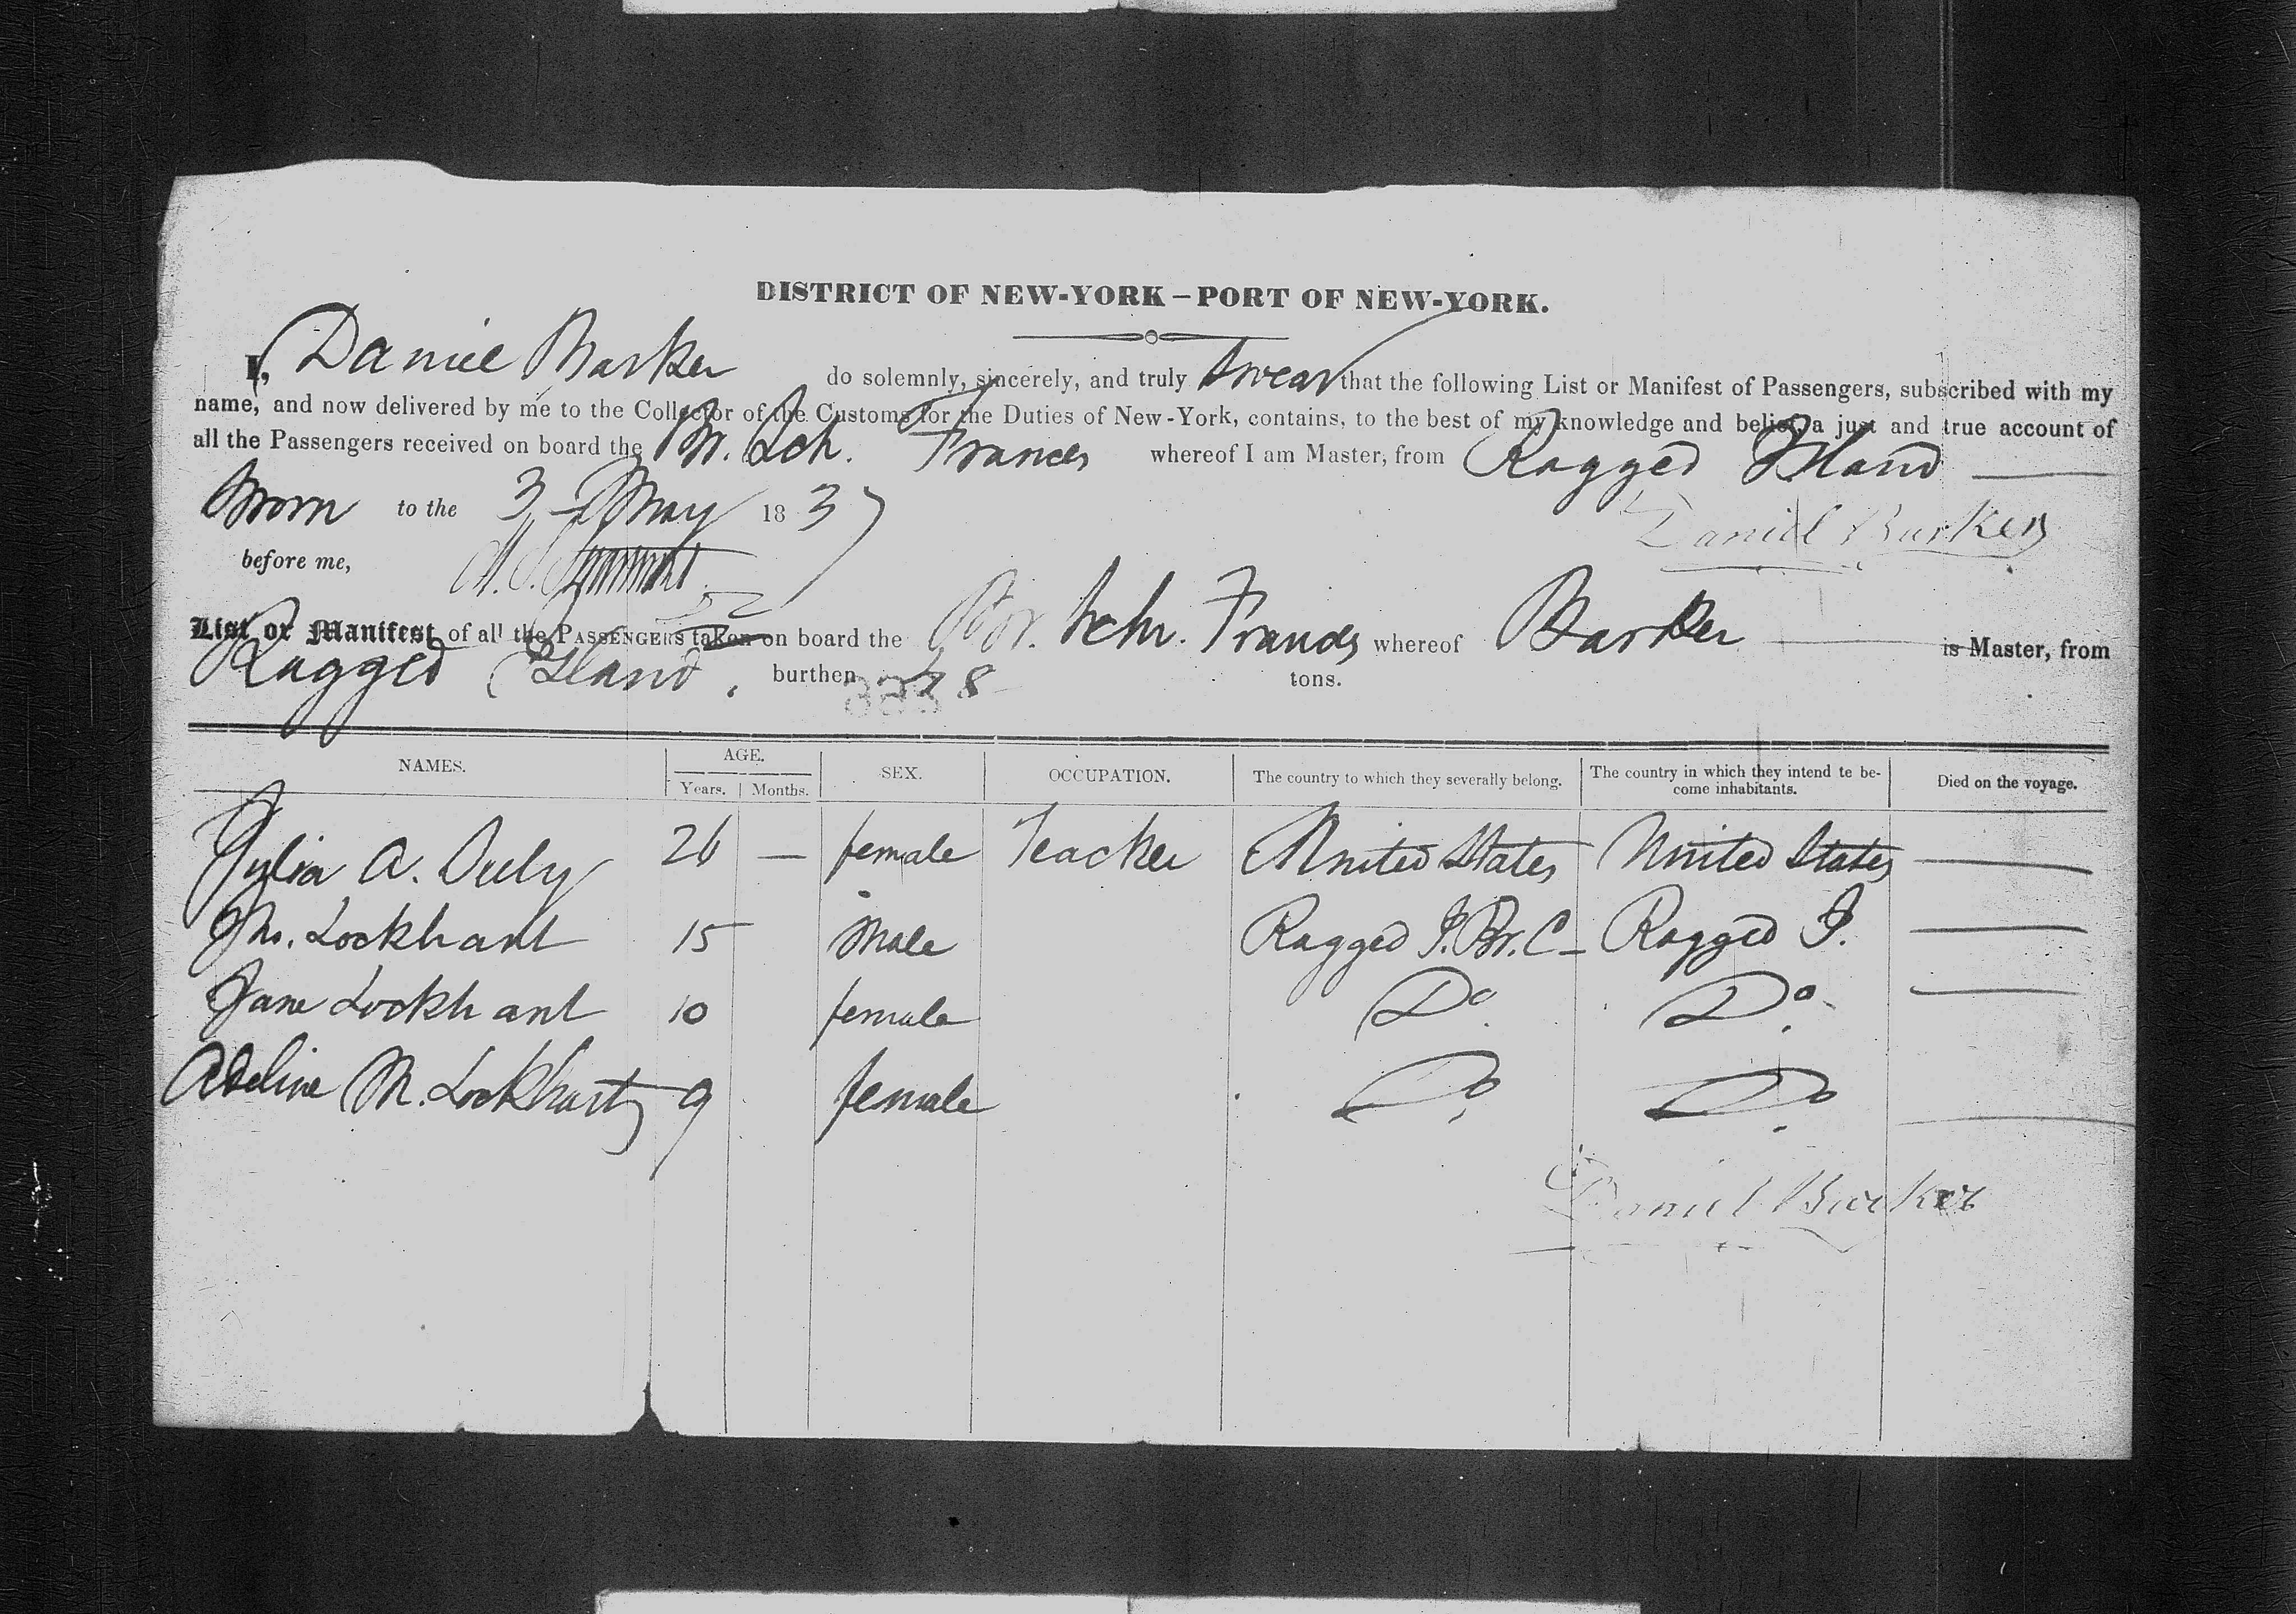 DISTRICT OF NEW-YORK – PORT OF NEW-YORK.
I, Daniel Barker do solemnly, sincerely, and truly swear that the following List or Manifest of Passengers, subscribed with my
name, and now delivered by me to the Collector of the Customs for the Duties of New-York, contains, to the best of my knowledge and belief, a just and true account of
all the Passengers received on board the Br. Sch. Frances whereof I am Master, from Ragged Island
Sworn to the 3 May 183
Daniel Barker
before me,
List or Manifest of all the PASSENGERS taken on board the Br. Schr. Frances whereof Barker is Master, from
Ragged Island, burthen 8 tons.
NAMES. AGE. Years. Months. SEX. OCCUPATION. The country to which they severally belong. The country in which they intend te become inhabitants. Died on the voyage.
Julia A. 26 — female Teacher United States United States —
Lockhart 15 Male Ragged I. Br. C – Ragged I. —
Jane Lockhart 10 female Do Do —
Adeline M. Lockhart 9 female Do Do —
Daniel Barker